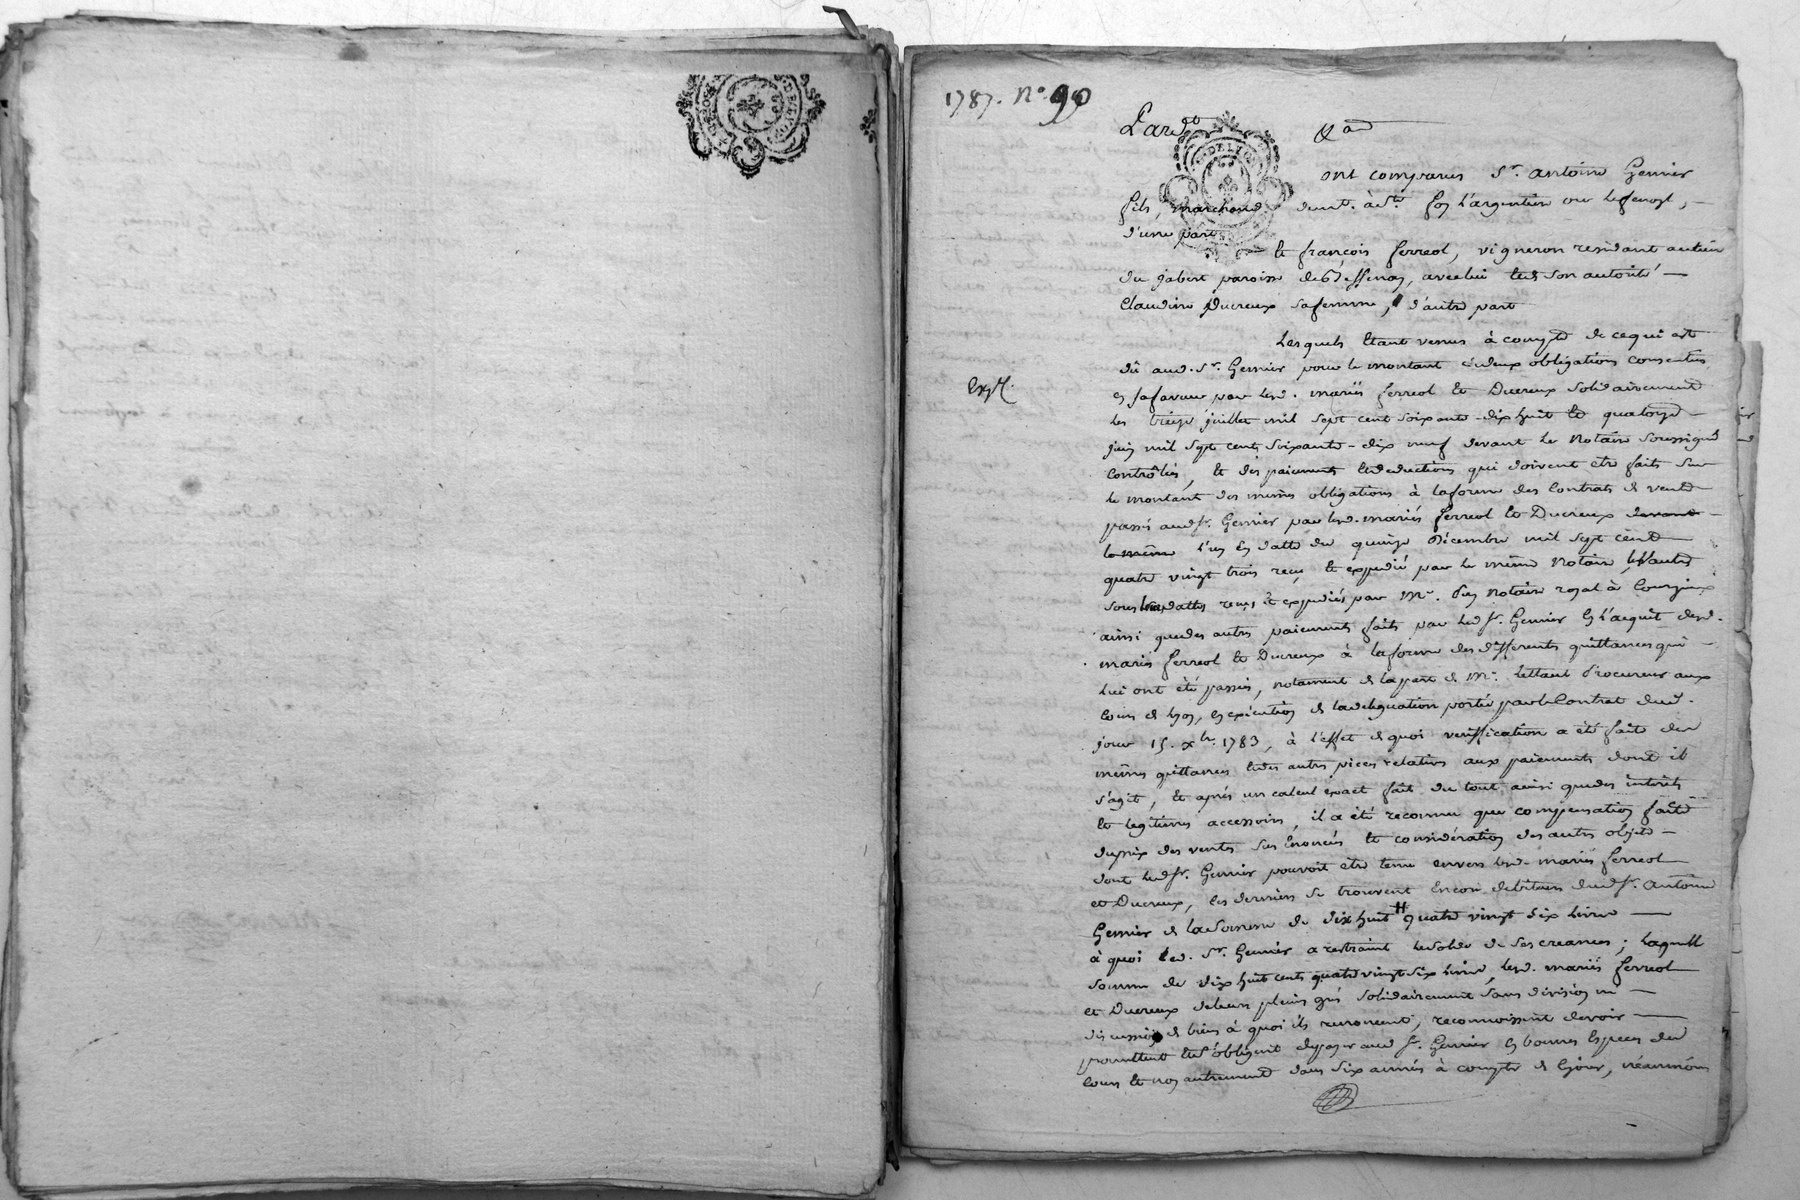 1787. N°. 99
Pardt &a
ont comparus Sr. antoine Gernier
fils, marchand demt. à St. foy l'argentiere ou Lefenoyl,
d'une part
Et françois ferreol, vigneron residant au lieu
du jabert paroisse de Bessenay, avec lui et de son autorité
Claudine Ducreux sa femme, d'autre part
Expt.
Lesquels Etant venus à compte de ce qui est
dû aud. Sr. Gernier pour le montant de deux obligations consenties
en sa faveur par lesd. mariés ferreol Et Ducreux solidairement
les treize juillet mil sept cent soixante-dix huit Et quatorze
juin mil sept cent soixante-dix neuf devant Le Notaire soussigné
Controllées, Et des paiements Et deductions qui doivent etre faits sur
le montant des mêmes obligations à la forme des Contrats de vente
passés aud. Sr. Gernier par lesd. mariés ferreol Et Ducreux devant
le même l'un En datte du quinze Décembre mil sept cent
quatre vingt trois reçu Et expedié par le même Notaire,
sous dattes reçus et expediés par Me. notaire royal à Courzieux
ainsi que des autres paiements faits par led. Sr. Gernier En l'acquit desd.
mariés ferreol Et Ducreux à la forme des differents quittances qui
lui ont été passées, notament de la part de Me. procureur aux
Cours de Lyon, En execution de la delegation portée par le Contrat dud.
jour 15. xbre. 1783, à l'effet de quoi verification a été faite des
mêmes quittances Et des autres pieces relatives aux paiements dont il
s'agit, Et après un calcul exact fait du tout ainsi que des interêts
Et legitimes accessoires, il a été reconnu que compensation faite
du prix des ventes sus Enoncées Et consideration des autres objets
dont led. Sr. Gernier pouvoit être tenu envers lesd. mariés ferreol
et Ducreux, ces derniers se trouvent Encore debiteurs dud. Sr. Antoine
Gernier de la somme de dix huit # quatre vingt dix livres
à quoi led. Sr. Gernier a restraint le solde de ses creances; Laquelle
somme de dix huit cents quatre vingt dix livres, lesd. mariés ferreol
et Ducreux de leur plein gré solidairement sans division ni
discussion de biens à quoi ils renoncent, reconnoissent devoir
promettent Et s'obligent de payer aud. Sr. Gernier En bonnes Especes du
Cours Et non autrement dans six années à compter de Ce jour, néanmoins